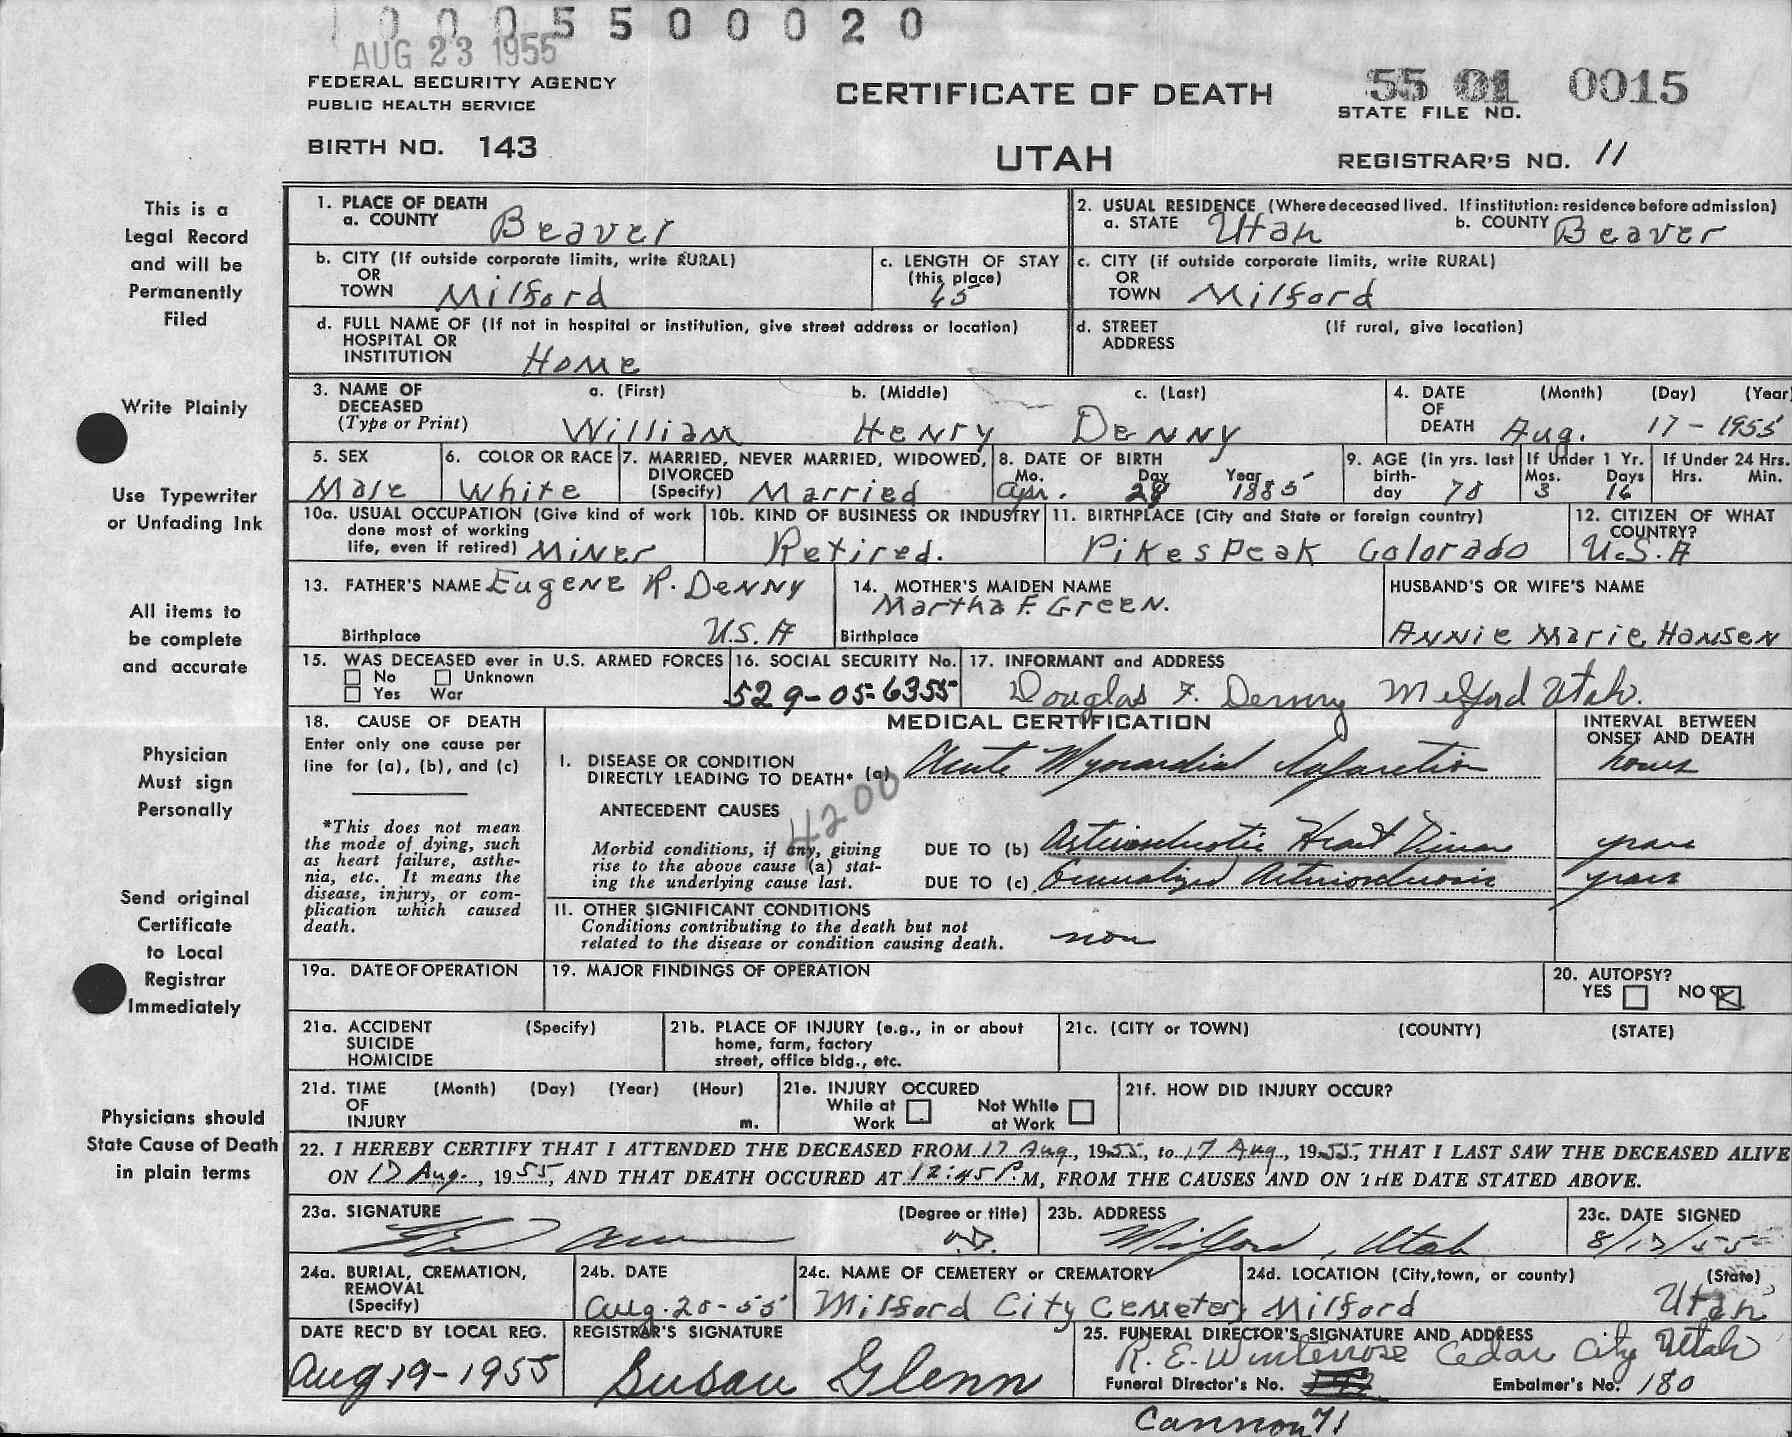 1 0 0 0 5 5 0 0 0 2 0
AUG 23 1955
FEDERAL SECURITY AGENCY
PUBLIC HEALTH SERVICE
BIRTH NO. 143
CERTIFICATE OF DEATH
UTAH
55 01 0015
STATE FILE NO.
REGISTRAR'S NO. 11
This is a
Legal Record
and will be
Permanently
Filed
Write Plainly
Use Typewriter
or Unfading Ink
All items to
be complete
and accurate
Physician
Must sign
Personally
Send original
Certificate
to Local
Registrar
Immediately
Physicians should
State Cause of Death
in plain terms
1. PLACE OF DEATH
a. COUNTY Beaver
2. USUAL RESIDENCE (Where deceased lived. If institution: residence before admission)
a. STATE Utah b. COUNTY Beaver
b. CITY (If outside corporate limits, write RURAL)
OR
TOWN Milford
c. LENGTH OF STAY
(this place)
45
c. CITY (if outside corporate limits, write RURAL)
OR
TOWN Milford
d. FULL NAME OF (If not in hospital or institution, give street address or location)
HOSPITAL OR
INSTITUTION Home
d. STREET (If rural, give location)
ADDRESS
3. NAME OF a. (First) b. (Middle) c. (Last)
DECEASED
(Type or Print) William Henry Denny
4. DATE (Month) (Day) (Year
OF
DEATH Aug. 17-1955
5. SEX
Male
6. COLOR OR RACE
White
7. MARRIED, NEVER MARRIED, WIDOWED,
DIVORCED
(Specify) Married
8. DATE OF BIRTH
Mo. Day Year
Apr. 28 1885
9. AGE (in yrs. last
birth-
day 70
If Under 1 Yr.
Mos. Days
3 16
If Under 24 Hrs.
Hrs. Min.
10a. USUAL OCCUPATION (Give kind of work
done most of working
life, even if retired) Miner
10b. KIND OF BUSINESS OR INDUSTRY
Retired.
11. BIRTHPLACE (City and State or foreign country)
Pikes Peak Colorado
12. CITIZEN OF WHAT
COUNTRY?
U.S.A
13. FATHER'S NAME Eugene R. Denny
Birthplace U.S.A
14. MOTHER'S MAIDEN NAME
Martha F. Green.
Birthplace
HUSBAND'S OR WIFE'S NAME
Annie Marie Hansen
15. WAS DECEASED ever in U.S. ARMED FORCES
No Unknown
Yes War
16. SOCIAL SECURITY No.
529-05-6355
17. INFORMANT and ADDRESS
Douglas F. Denny Milford Utah.
18. CAUSE OF DEATH
Enter only one cause per
line for (a), (b), and (c)
*This does not mean
the mode of dying, such
as heart failure, asthe-
nia, etc. It means the
disease, injury, or com-
plication which caused
death.
MEDICAL CERTIFICATION
INTERVAL BETWEEN
ONSET AND DEATH
I. DISEASE OR CONDITION
DIRECTLY LEADING TO DEATH* (a) Acute Myocardial Infarction hours
ANTECEDENT CAUSES
4200
Morbid conditions, if any, giving
rise to the above cause (a) stat-
ing the underlying cause last.
DUE TO (b) Arteriosclerotic Heart Disease years
DUE TO (c) Generalized Arteriosclerosis years
II. OTHER SIGNIFICANT CONDITIONS
Conditions contributing to the death but not
related to the disease or condition causing death. non
19a. DATE OF OPERATION
19. MAJOR FINDINGS OF OPERATION
20. AUTOPSY?
YES NO
21a. ACCIDENT (Specify)
SUICIDE
HOMICIDE
21b. PLACE OF INJURY (e.g., in or about
home, farm, factory
street, office bldg., etc.
21c. (CITY or TOWN) (COUNTY) (STATE)
21d. TIME (Month) (Day) (Year) (Hour)
OF
INJURY m.
21e. INJURY OCCURED
While at Not While
Work at Work
21f. HOW DID INJURY OCCUR?
22. I HEREBY CERTIFY THAT I ATTENDED THE DECEASED FROM 17 Aug., 1955, to 17 Aug., 1955, THAT I LAST SAW THE DECEASED ALIVE
ON 17 Aug., 1955, AND THAT DEATH OCCURED AT 12:45 P.M, FROM THE CAUSES AND ON THE DATE STATED ABOVE.
23a. SIGNATURE (Degree or title)
23b. ADDRESS
Milford, Utah
23c. DATE SIGNED
8/17/55
24a. BURIAL, CREMATION,
REMOVAL
(Specify)
24b. DATE
Aug. 20-55
24c. NAME OF CEMETERY or CREMATORY
Milford City Cemetery
24d. LOCATION (City, town, or county) (State)
Milford Utah
DATE REC'D BY LOCAL REG.
Aug 19-1955
REGISTRAR'S SIGNATURE
Susan Glenn
25. FUNERAL DIRECTOR'S SIGNATURE AND ADDRESS
R. E. Winterrose Cedar City Utah
Funeral Director's No. Embalmer's No. 180
Cannon 71